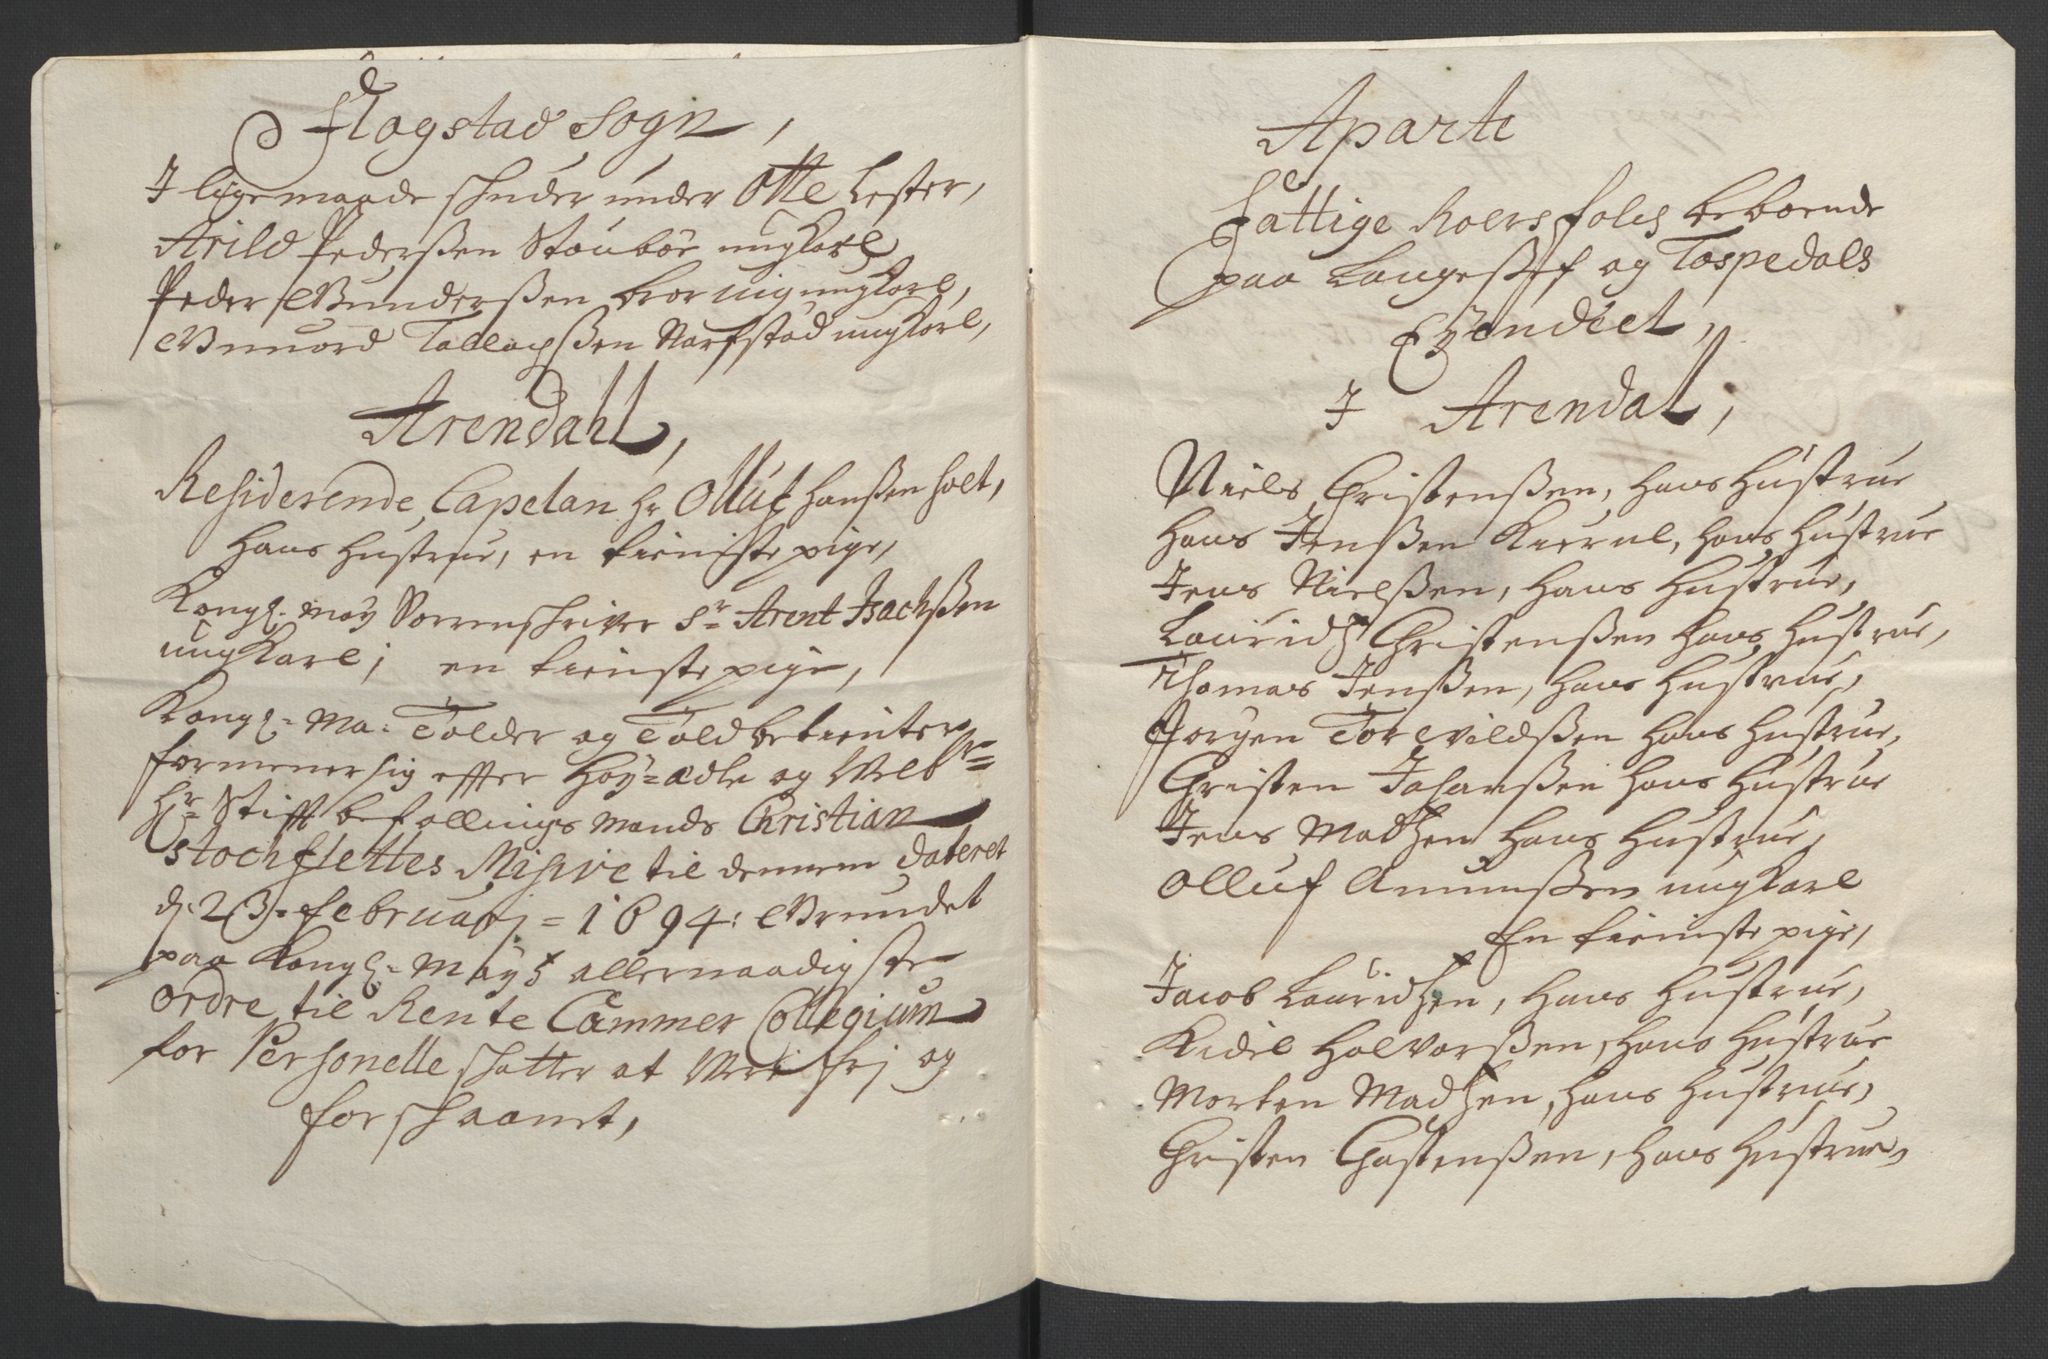 Flagstad Sogn,
I ligemaade schuder under Otte Lester,
Arild Pederßen Stoubøe ungKarl
Peder Gunderßen ungKarl,
Gunuord Tallachßen Narfstad ungKarl,
Arendahl,
Residerende Capelan hr Olluf Hanßen Holt,
Hans Hustrue, en tienniste pige,
Kongl. May Sorrenschriver Sr Arent Isachßen
ungKarl; en tienste pige,
Kongl. Ma: Tolder og Toldbetienter
formener sig effter Høy=ædle og Velbr=
Hr Stifft befallings Mands Christian
Stochflettes Misive til dennem dateret
d. 23. februarj = 1694: Grundet
paa Kongl. Mayts allernaadigste
Ordre til Rente Cammer Collegium
for Personelle schatter at Vere frj og
forschaanet,
Aparte
Fattige Roersfolch beboende
paa Langeßef og Taspedals
Eyendiel,
I Arendal,
Niels Christenßen, hans Hustrue
Hans Jenßen Kierul, hans Hustrue
Jens Nielßen, hans Hustrue,
Lauridz Christenßen hans Hustrue,
Thomas Jenßen, hans Hustrue,
Jørgen Torevildßen hans Hustrue,
Christen Johanßen hans Hustrue
Jens Madzen hans Hustrue,
Olluf Anunßen ungKarl
En tienniste pige,
Jacob Lauridzen, hans Hustrue,
Kidel Halvorßen, hans Hustrue
Morten Madzen, hans Hustrue,
Christen Chastenßen, hans Hustrue,